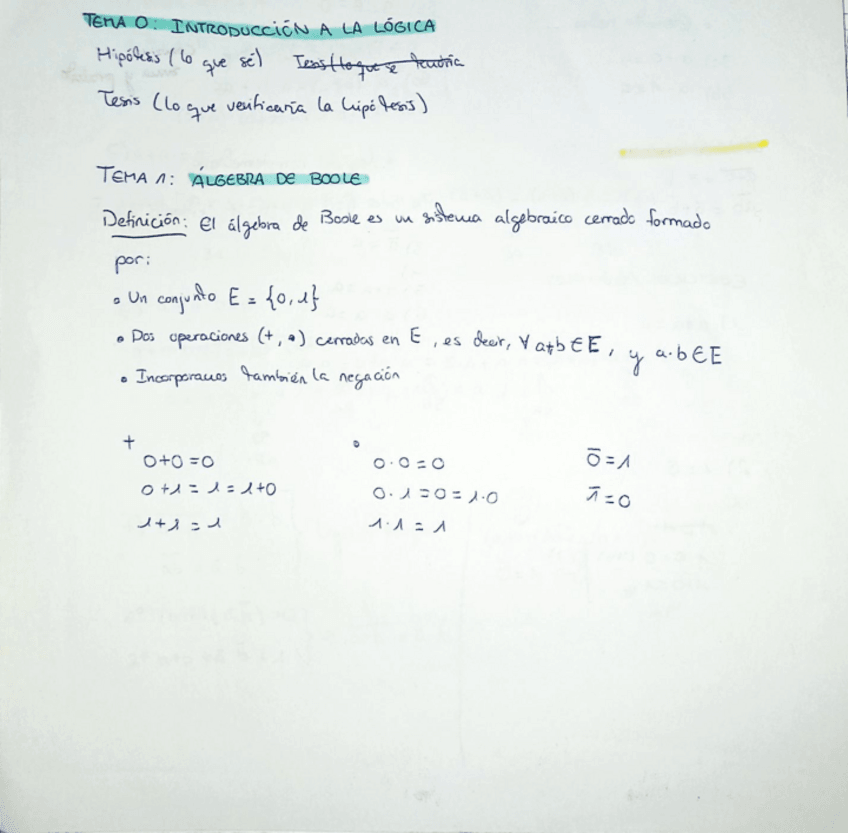 TEMA 0: INTRODUCCIÓN A LA LÓGICA
Hipótesis (lo que sé) Tesis (lo que se tendría
Tesis (lo que verificaría la hipótesis)
TEMA 1: ÁLGEBRA DE BOOLE
Definición: El álgebra de Boole es un sistema algebraico cerrado formado
por:
• Un conjunto E = {0,1}
• Dos operaciones (+, •) cerradas en E, es decir, ∀ a+b ∈ E, y a·b ∈ E
• Incorporamos también la negación
+ •
0+0=0 0·0=0 0̅=1
0+1=1=1+0 0·1=0=1·0 1̅=0
1+1=1 1·1=1